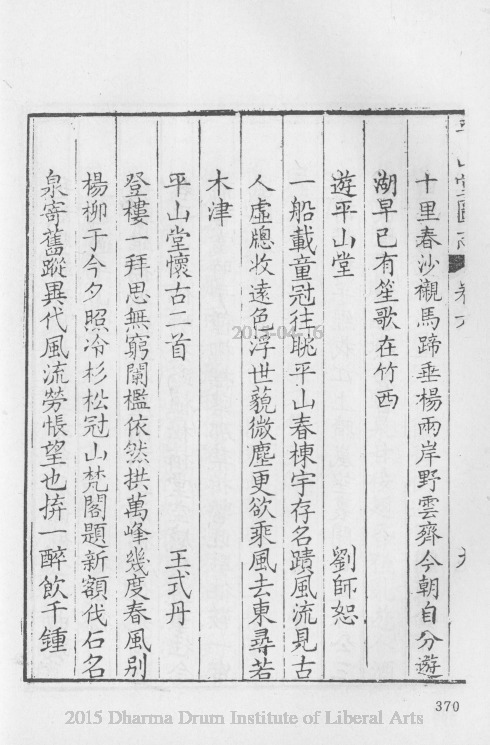 平山堂圖志 卷六 九
十里春沙襯馬蹄垂楊兩岸野雲齊今朝自分遊
湖早已有笙歌在竹西
遊平山堂 劉師恕
一船載童冠往眺平山春棟宇存名蹟風流見古
人虛牕收遠色浮世藐微塵更欲乘風去東尋若
木津
平山堂懷古二首 王式丹
登樓一拜思無窮闌檻依然拱萬峰幾度春風别
楊柳于今夕照冷杉松冠山梵閣題新額伐石名
泉寄舊蹤異代風流勞悵望也拚一醉飲千鍾
2015-04-16
370
2015 Dharma Drum Institute of Liberal Arts